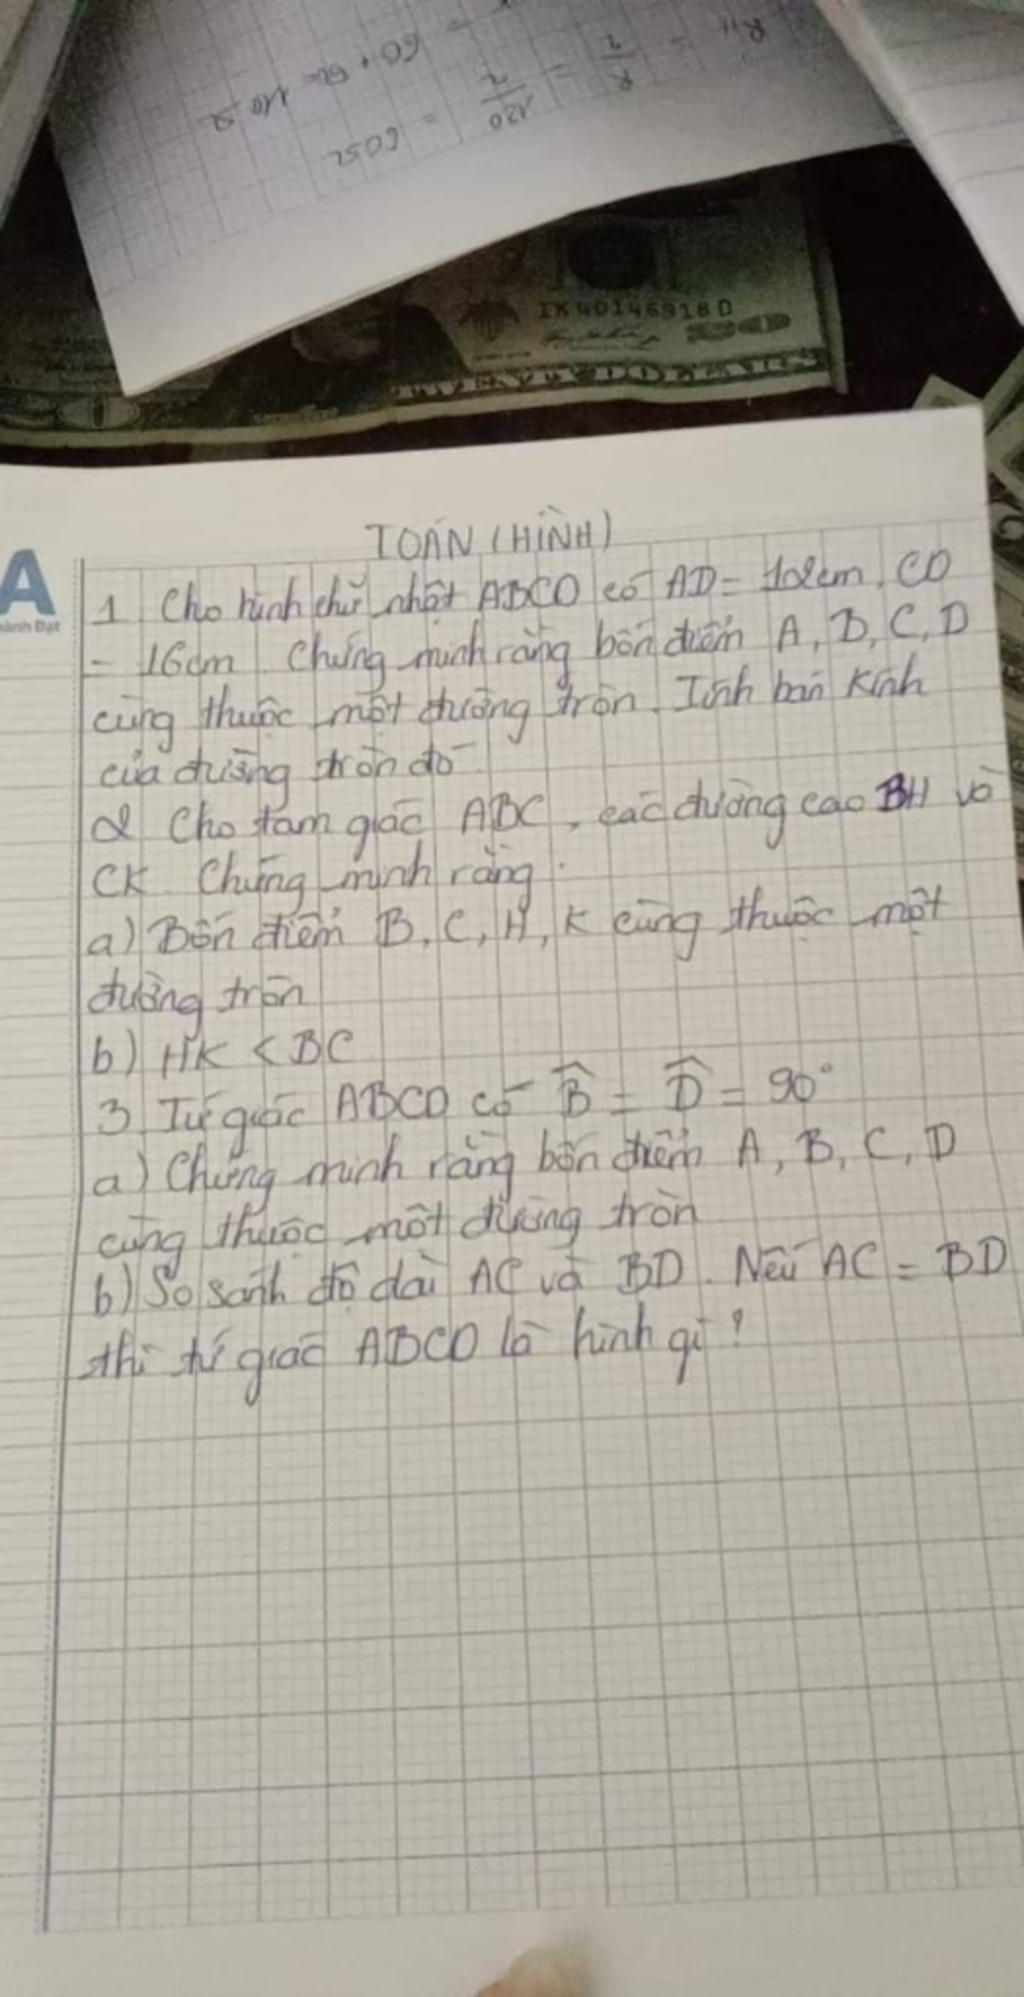 R//=R/2=120/2=60Ω
IK40146918D
20
TWENTY DOLLARS
A
ành Đạt
TOÁN (HÌNH)
1 Cho hình chữ nhật ABCD có AD= 12cm, CD
= 16cm Chứng minh rằng bốn điểm A, B, C, D
cùng thuộc một đường tròn. Tính bán kính
của đường tròn đó
2 Cho tam giác ABC, các đường cao BH và
CK. Chứng minh rằng:
a) Bốn điểm B, C, H, K cùng thuộc một
đường tròn
b) HK < BC
3. Tứ giác ABCD có B̂ = D̂ = 90°
a) Chứng minh rằng bốn điểm A, B, C, D
cùng thuộc một đường tròn
b) So sánh độ dài AC và BD. Nếu AC = BD
thì tứ giác ABCD là hình gì?